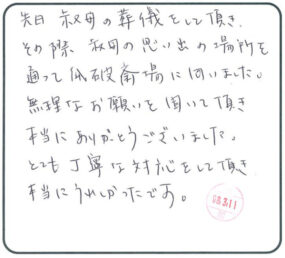 先日 叔母の葬儀をして頂き、
その際、叔母の思い出の場所を
通って 斎場に伺いました。
無理なお願いを聞いて頂き
本当にありがとうございました。
とても丁寧な対応をして頂き
本当にうれしかったです。